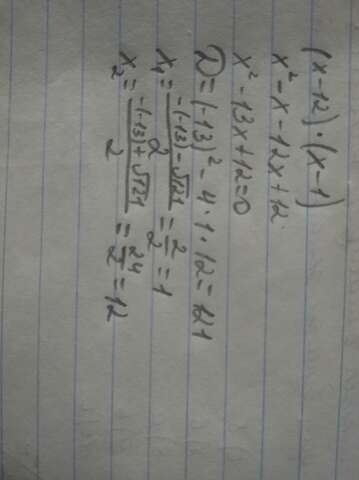 (x-12)·(x-1)
x²-x-12x+12
x²-13x+12=0
D=(-13)²-4·1·12=121
x₁=(-(-13)-√121)/2=2/2=1
x₂=(-(-13)+√121)/2=24/2=12